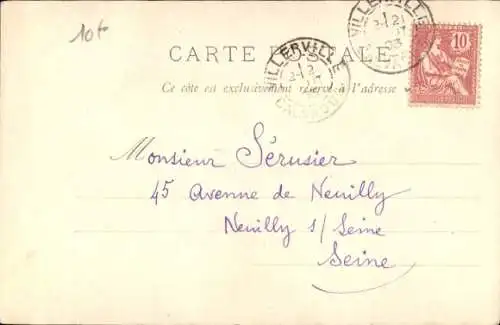 10f
CARTE POSTALE
VILLERVILLE
CALVADOS
VILLERVILLE
10
Ce côté est exclusivement réservé à l'adresse
Monsieur Sérusier
45 Avenue de Neuilly
Neuilly s/ Seine
Seine